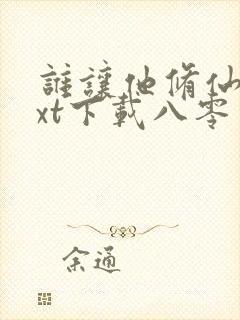 誰讓他脩仙
xt下載八零
余通